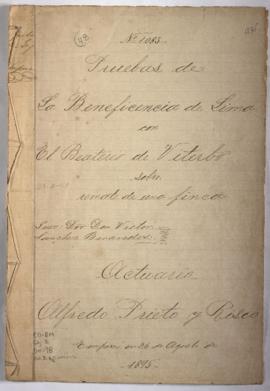 Nº 1083
Pruebas de
La Beneficencia de Lima
con
El Beaterio de Viterbo
sobre
remate de una finca
Juez Dor Don Victor
Sanchez Benavides
Actuario
Alfredo Prieto y Risco
Empieza en 26 de Agosto de
1895